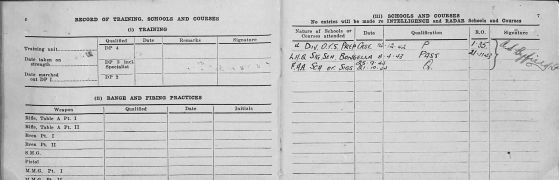 6
RECORD OF TRAINING, SCHOOLS AND COURSES
(I) TRAINING
Qualified Date Remarks Signature
Training unit DP 4
Date taken on strength DP 3 incl. Specialist
Date marched out DP 1 DP 2
(II) RANGE AND FIRING PRACTICES
Weapon Qualified Date Initials
Rifle, Table A Pt. I
Rifle, Table A Pt. II
Bren Pt. I
Bren Pt. II
S.M.G.
Pistol
M.M.G. Pt. I
M.M.G. Pt. II
7
(III) SCHOOLS AND COURSES
No entries will be made re INTELLIGENCE and RADAR Schools and Courses
Nature of Schools or Courses attended Date Qualification R.O. Signature
DIV. PREP 12.42 P 1/35
L.H.Q. SIG SCH. BONEGILLA 4.43 PASS
SCH OF SIGS 10.43 Q.